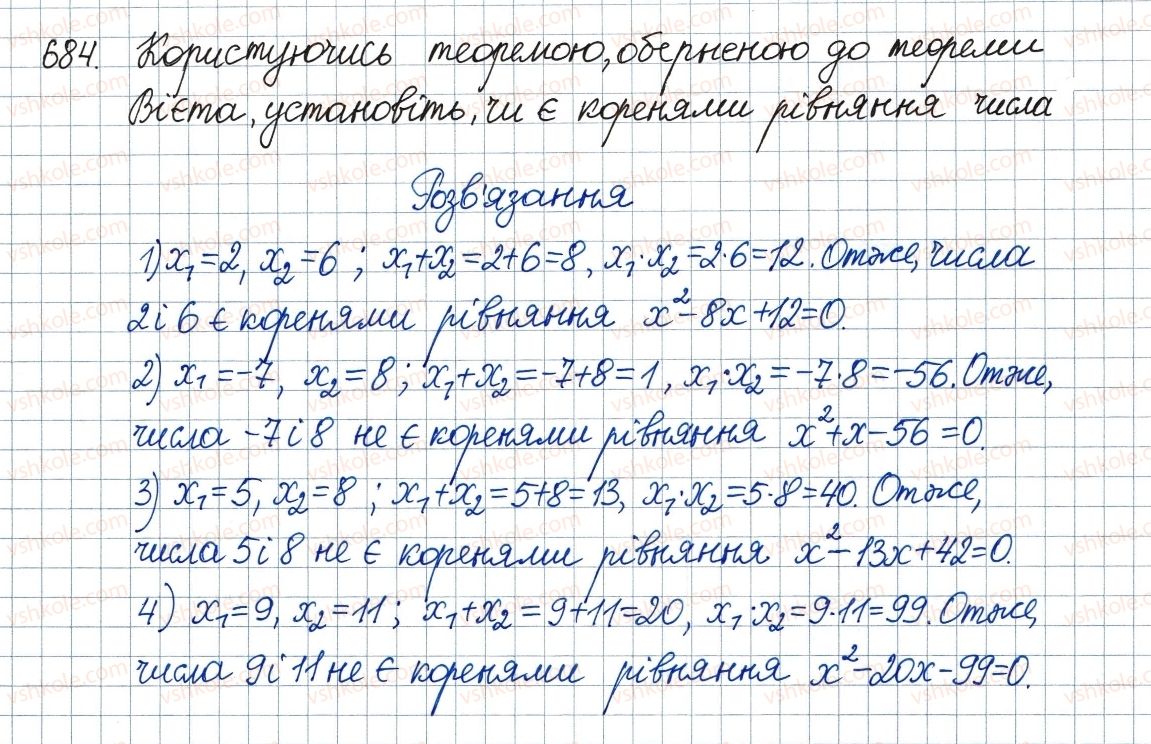 684. Користуючись теоремою, оберненою до теореми
Вієта, установіть, чи є коренями рівняння числа
Розв'язання
1) x₁=2, x₂=6; x₁+x₂=2+6=8, x₁·x₂=2·6=12. Отже, числа
2 і 6 є коренями рівняння x²-8x+12=0.
2) x₁=-7, x₂=8; x₁+x₂=-7+8=1, x₁·x₂=-7·8=-56. Отже,
числа -7 і 8 не є коренями рівняння x²+x-56=0.
3) x₁=5, x₂=8; x₁+x₂=5+8=13, x₁·x₂=5·8=40. Отже,
числа 5 і 8 не є коренями рівняння x²-13x+42=0.
4) x₁=9, x₂=11; x₁+x₂=9+11=20, x₁·x₂=9·11=99. Отже,
числа 9 і 11 не є коренями рівняння x²-20x-99=0.
vshkole.com